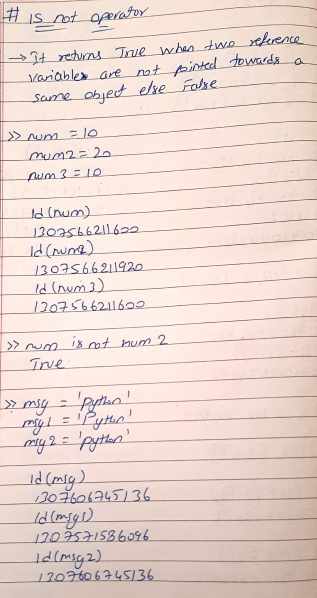 # IS not operator
→ It returns True when two reference
variables are not pointed towards a
same object else False
>> num = 10
num2 = 20
num3 = 10
Id(num)
1307566211600
Id(num2)
1307566211920
Id(num3)
1307566211600
>> num is not num2
True
>> msg = 'python'
msg1 = 'Python'
msg2 = 'python'
Id(msg)
1307606745136
Id(msg1)
1307571586096
Id(msg2)
1307606745136